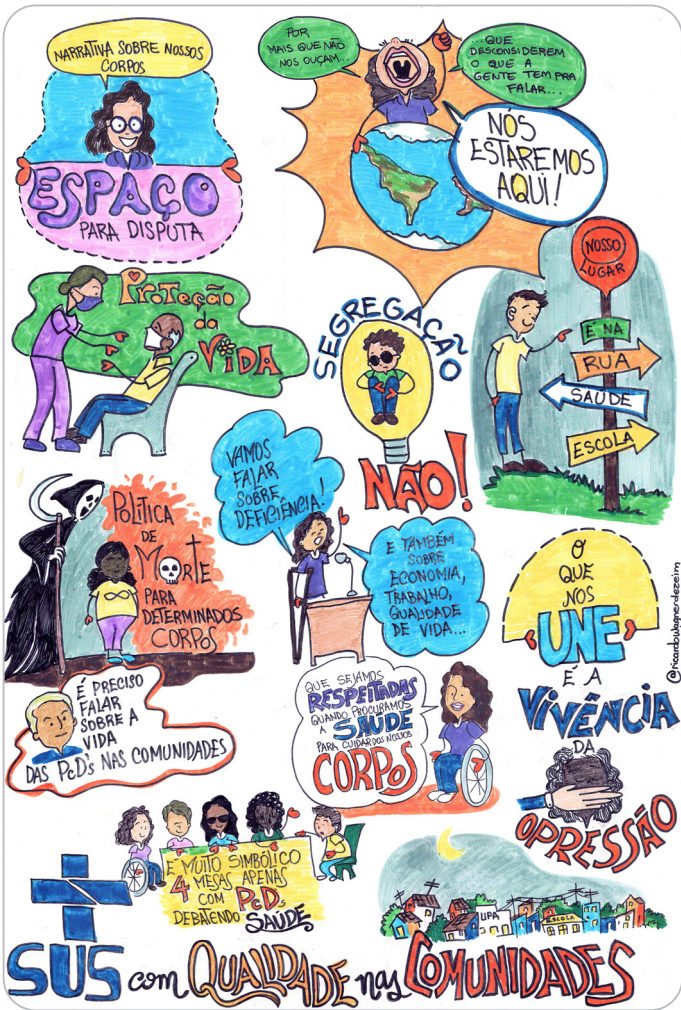 NARRATIVA SOBRE NOSSOS
CORPOS
ESPAÇO
PARA DISPUTA
POR
MAIS QUE NÃO
NOS OUÇAM...
...QUE
DESCONSIDEREM
O QUE A
GENTE TEM PRA
FALAR...
NÓS
ESTAREMOS
AQUI!
PROTEÇÃO
da
VIDA
SEGREGAÇÃO
NÃO!
NOSSO
LUGAR
É NA
RUA
SAÚDE
ESCOLA
POLÍTICA
DE
MORTE
PARA
DETERMINADOS
CORPOS
VAMOS
FALAR
SOBRE
DEFICIÊNCIA!
E TAMBÉM
SOBRE
ECONOMIA,
TRABALHO,
QUALIDADE
DE VIDA...
O
QUE
NOS
UNE
É A
VIVÊNCIA
DA
OPRESSÃO
@ricardowagnerdezeim
É PRECISO
FALAR
SOBRE A
VIDA
DAS PcD's NAS COMUNIDADES
QUE SEJAMOS
RESPEITADAS
QUANDO PROCURAMOS
A SAÚDE
PARA CUIDAR DOS NOSSOS
CORPOS
É MUITO SIMBÓLICO
4 MESAS APENAS
COM PcDs
DEBATENDO SAÚDE
UPA
ESCOLA
SUS com QUALIDADE nas COMUNIDADES